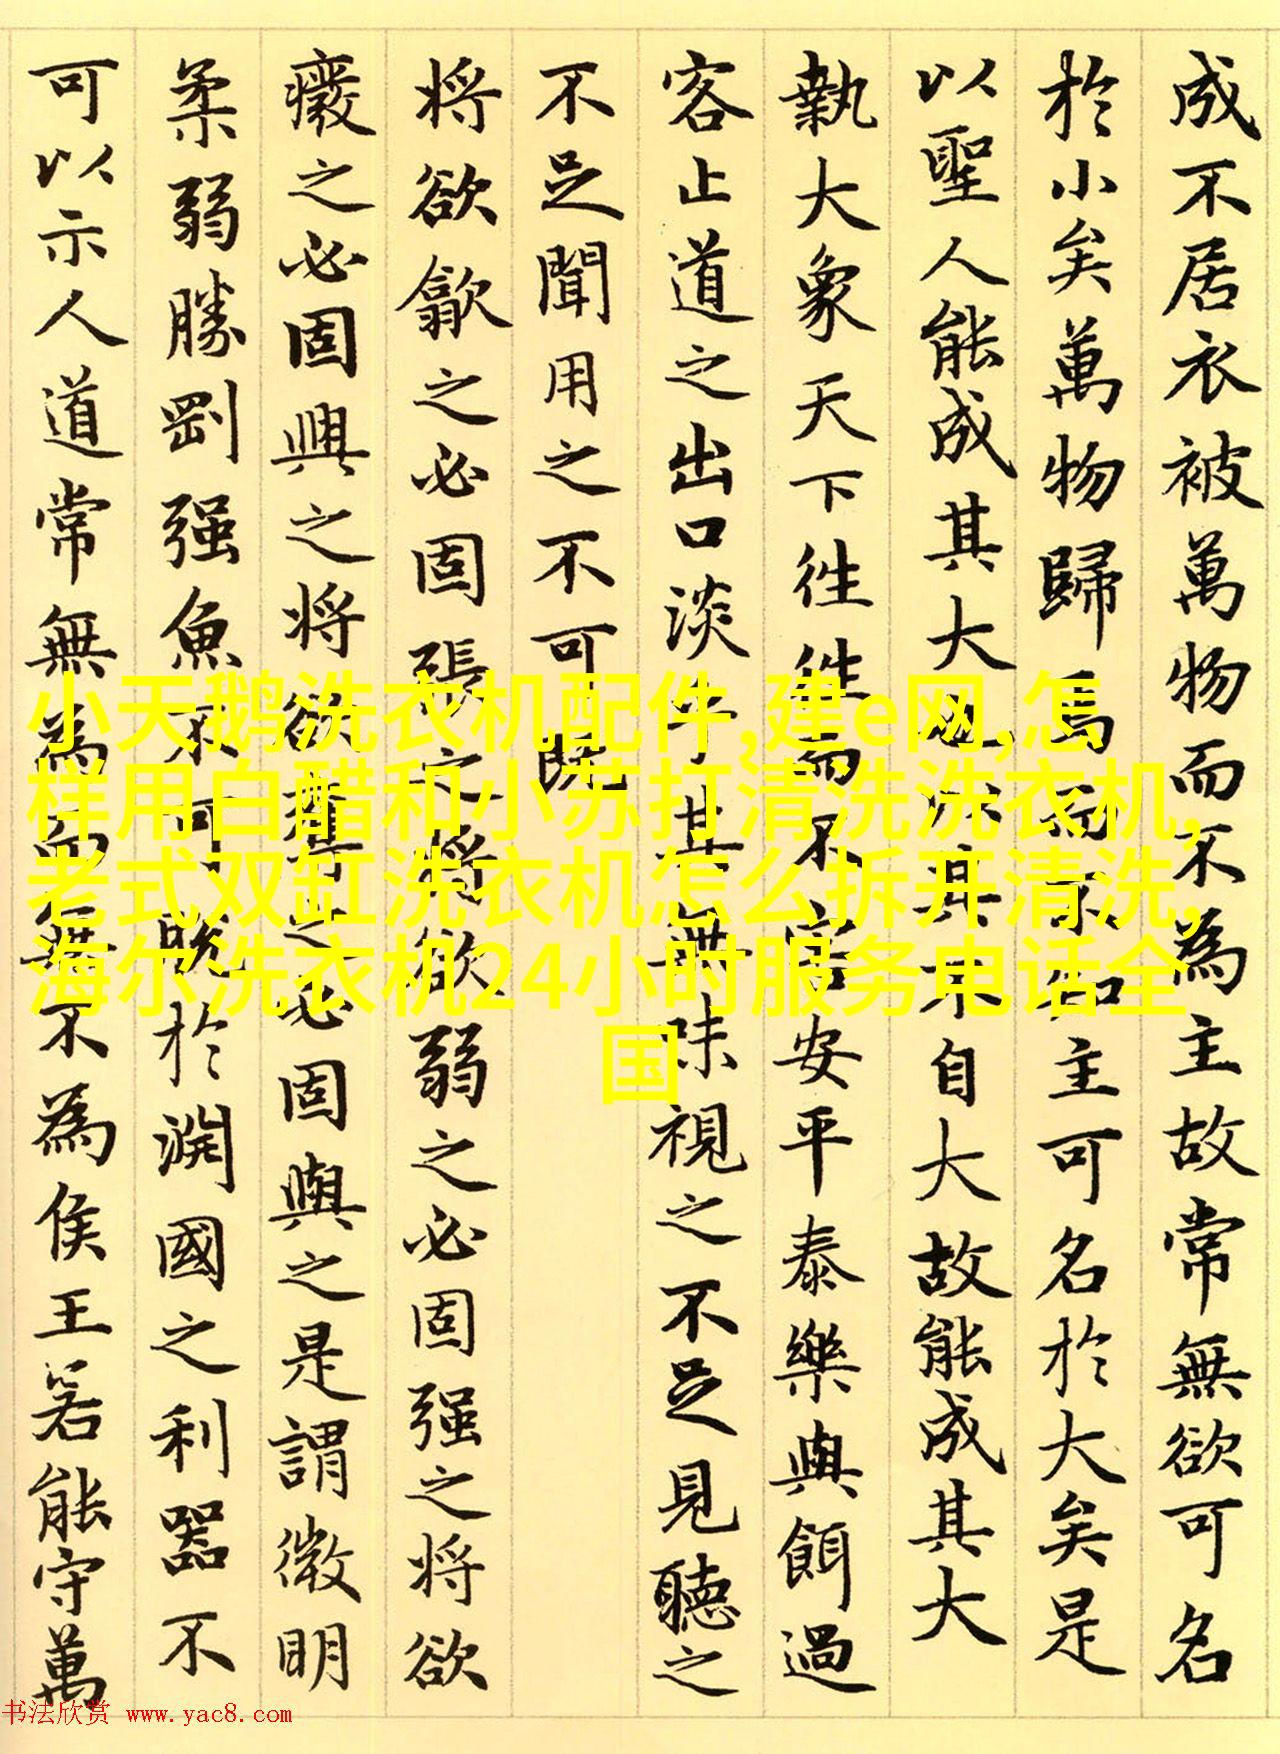 成不居衣被萬物而不為主故常無欲可名
於小矣萬物歸焉而不知主可名於大矣是
以聖人能成其大也以其不自大故能成其大
執大象天下往往而不害安平泰樂與餌過
客止道之出口淡乎其無味視之不足見聽之
不足聞用之不可既
將欲歙之必固張之將欲弱之必固强之將欲
癈之必固興之將欲奪之必固與之是謂微明
柔弱勝剛强魚不可脫於淵國之利器不
可以示人道常無為而無不為侯王若能守萬
小天鹅洗衣机配件,建e网,怎
样用白醋和小苏打清洗洗衣机,
老式双缸洗衣机怎么拆开清洗,
海尔洗衣机24小时服务电话全
国
书法欣赏 www.yac8.com